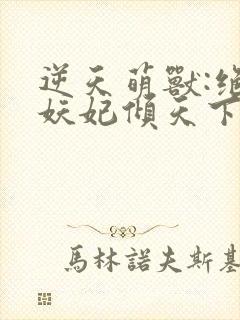 逆天萌獸:絕
妖妃傾天下
馬林諾夫斯基